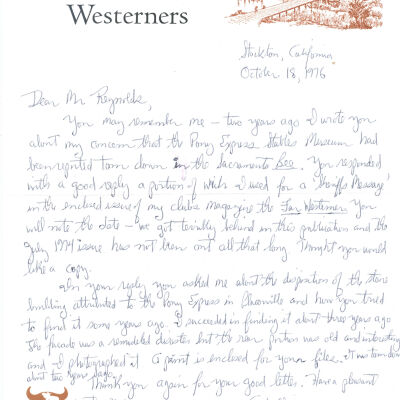 Westerners
Stockton, California
October 18, 1976
Dear Mr Reynolds,
You may remember me – two years ago I wrote you
about my concern that the Pony Express Stables Museum had
been reported torn down in the Sacramento Bee. You responded
with a good reply a portion of which I used for a "Sheriff's Message"
in the enclosed issue of my clubs magazine the Far Westerner. You
will note the date – we got terribly behind in this publication and the
July 1974 issue has not been out all that long. Thought you would
like a copy.
In your reply you asked me about the disposition of the store
building attributed to the Pony Express in Placerville and how you tried
to find it some years ago. I succeeded in finding it about three years ago
The facade was a remodeled disaster but the rear portion was old and interesting
and I photographed it. A print is enclosed for your files. It was torn down
about two years ago.
Thank you again for your good letter. Have a pleasant